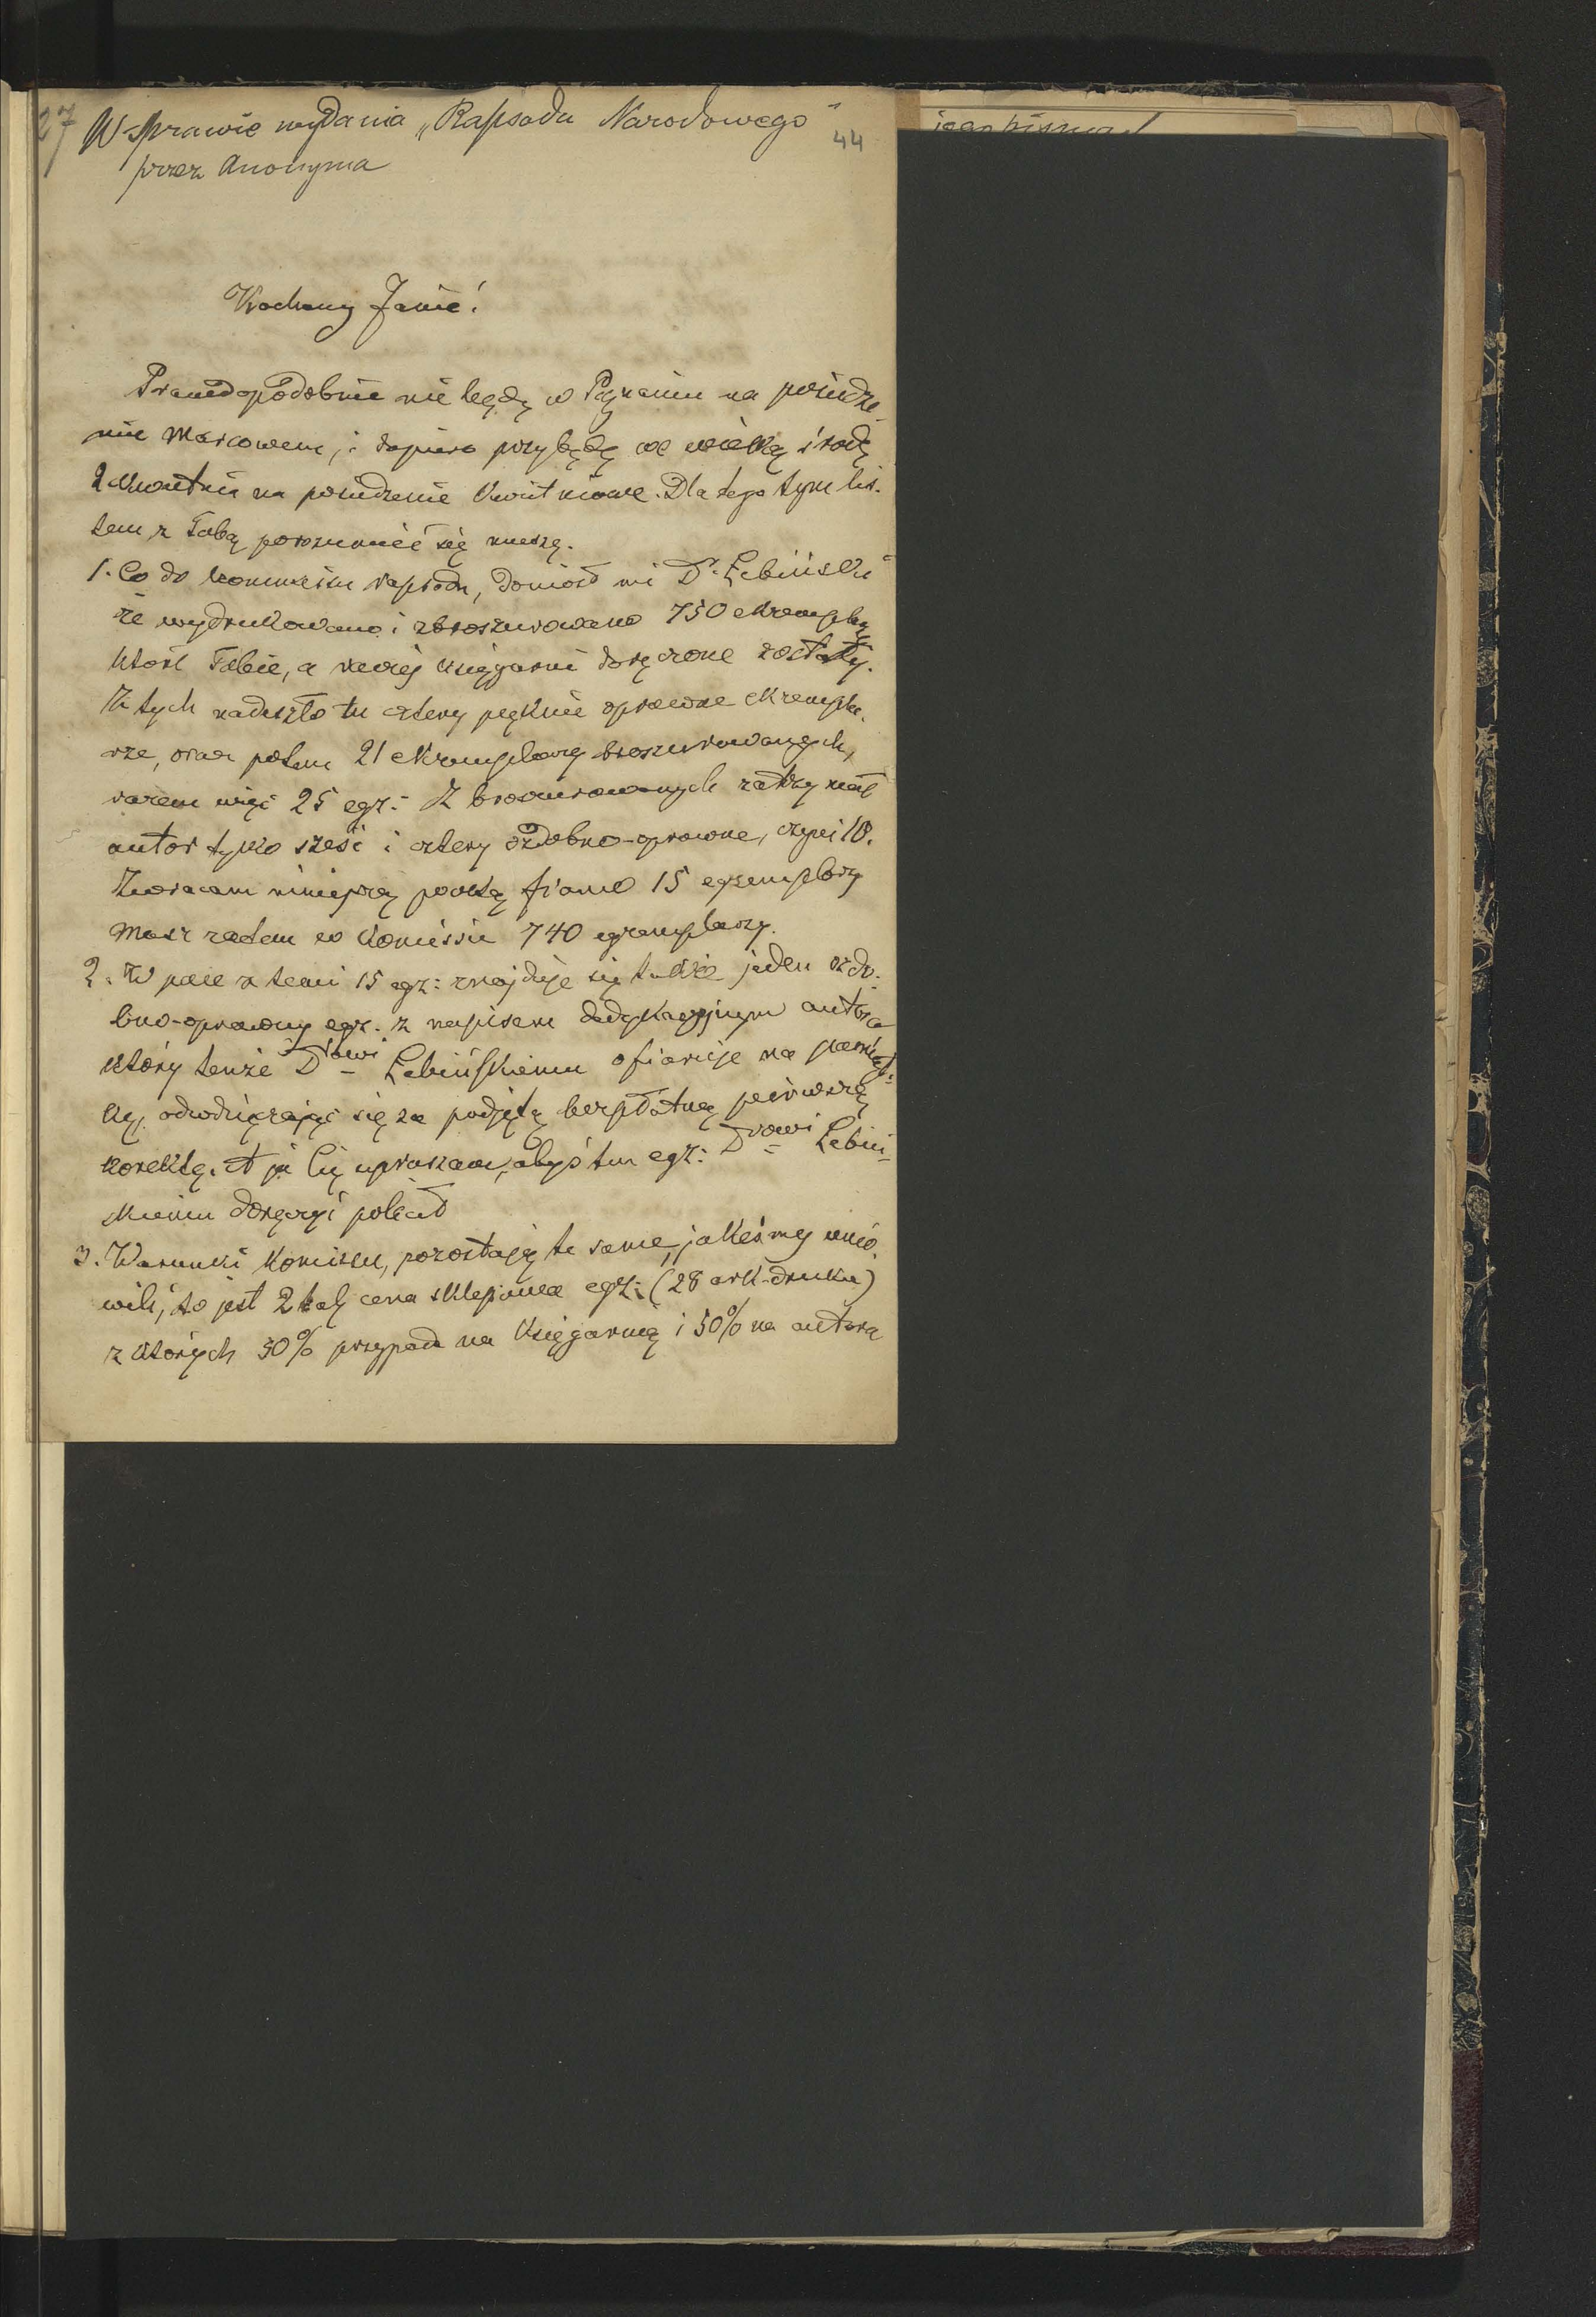 27 W sprawie wydania „Rapsodu Narodowego"
44
przez Anonyma
Kochany Janie!
Prawdopodobnie nie będę w Poznaniu na posiedze-
nie Marcowem, i dopiero przybędę we wielką środę
2 Kwietnia na posiedzenie Kwietniowe. Dla tego tym lis-
tem z Tobą porozumieć się muszę.
1. Co do kommissu rapsodu, doniósł mi Dr. Łebiński
że wydrukowano i zbroszurowano 750 ekzemplarzy
które Tobie, a raczej księgarni doręczone zostały.
Z tych nadeszło tu cztery pięknie oprawne ekzempla-
rze, oraz potem 21 ekzemplarzy broszurowanych,
razem więc 25 egz: Z broszurowanych zatrzymał
autor tylko sześć i cztery ozdobno-oprawne, czyli 10.
Zwracam niniejszą pocztą franco 15 egzemplarzy
masz zatem w komissie 740 egzemplarzy.
2. W pace z temi 15 egz: znajduje się także jeden ozdo-
bno-oprawny egz. z napisem dedykacyjnym autora
który tenże Drowi Łebińskiemu ofiaruje na pamiąt-
kę, odwdzięczając się za podjętą bezpłatną pierwszą
korektę. A ja Cię upraszam, abyś ten egz: Drowi Łebiń-
skiemu doręczyć polecił
3. Warunki komissu, pozostają te same, jakeśmy umó-
wili, to jest 2 tal. cena sklepowa egz: (28 ark. druku)
z których 50% przypada na Księgarnię i 50% na autora